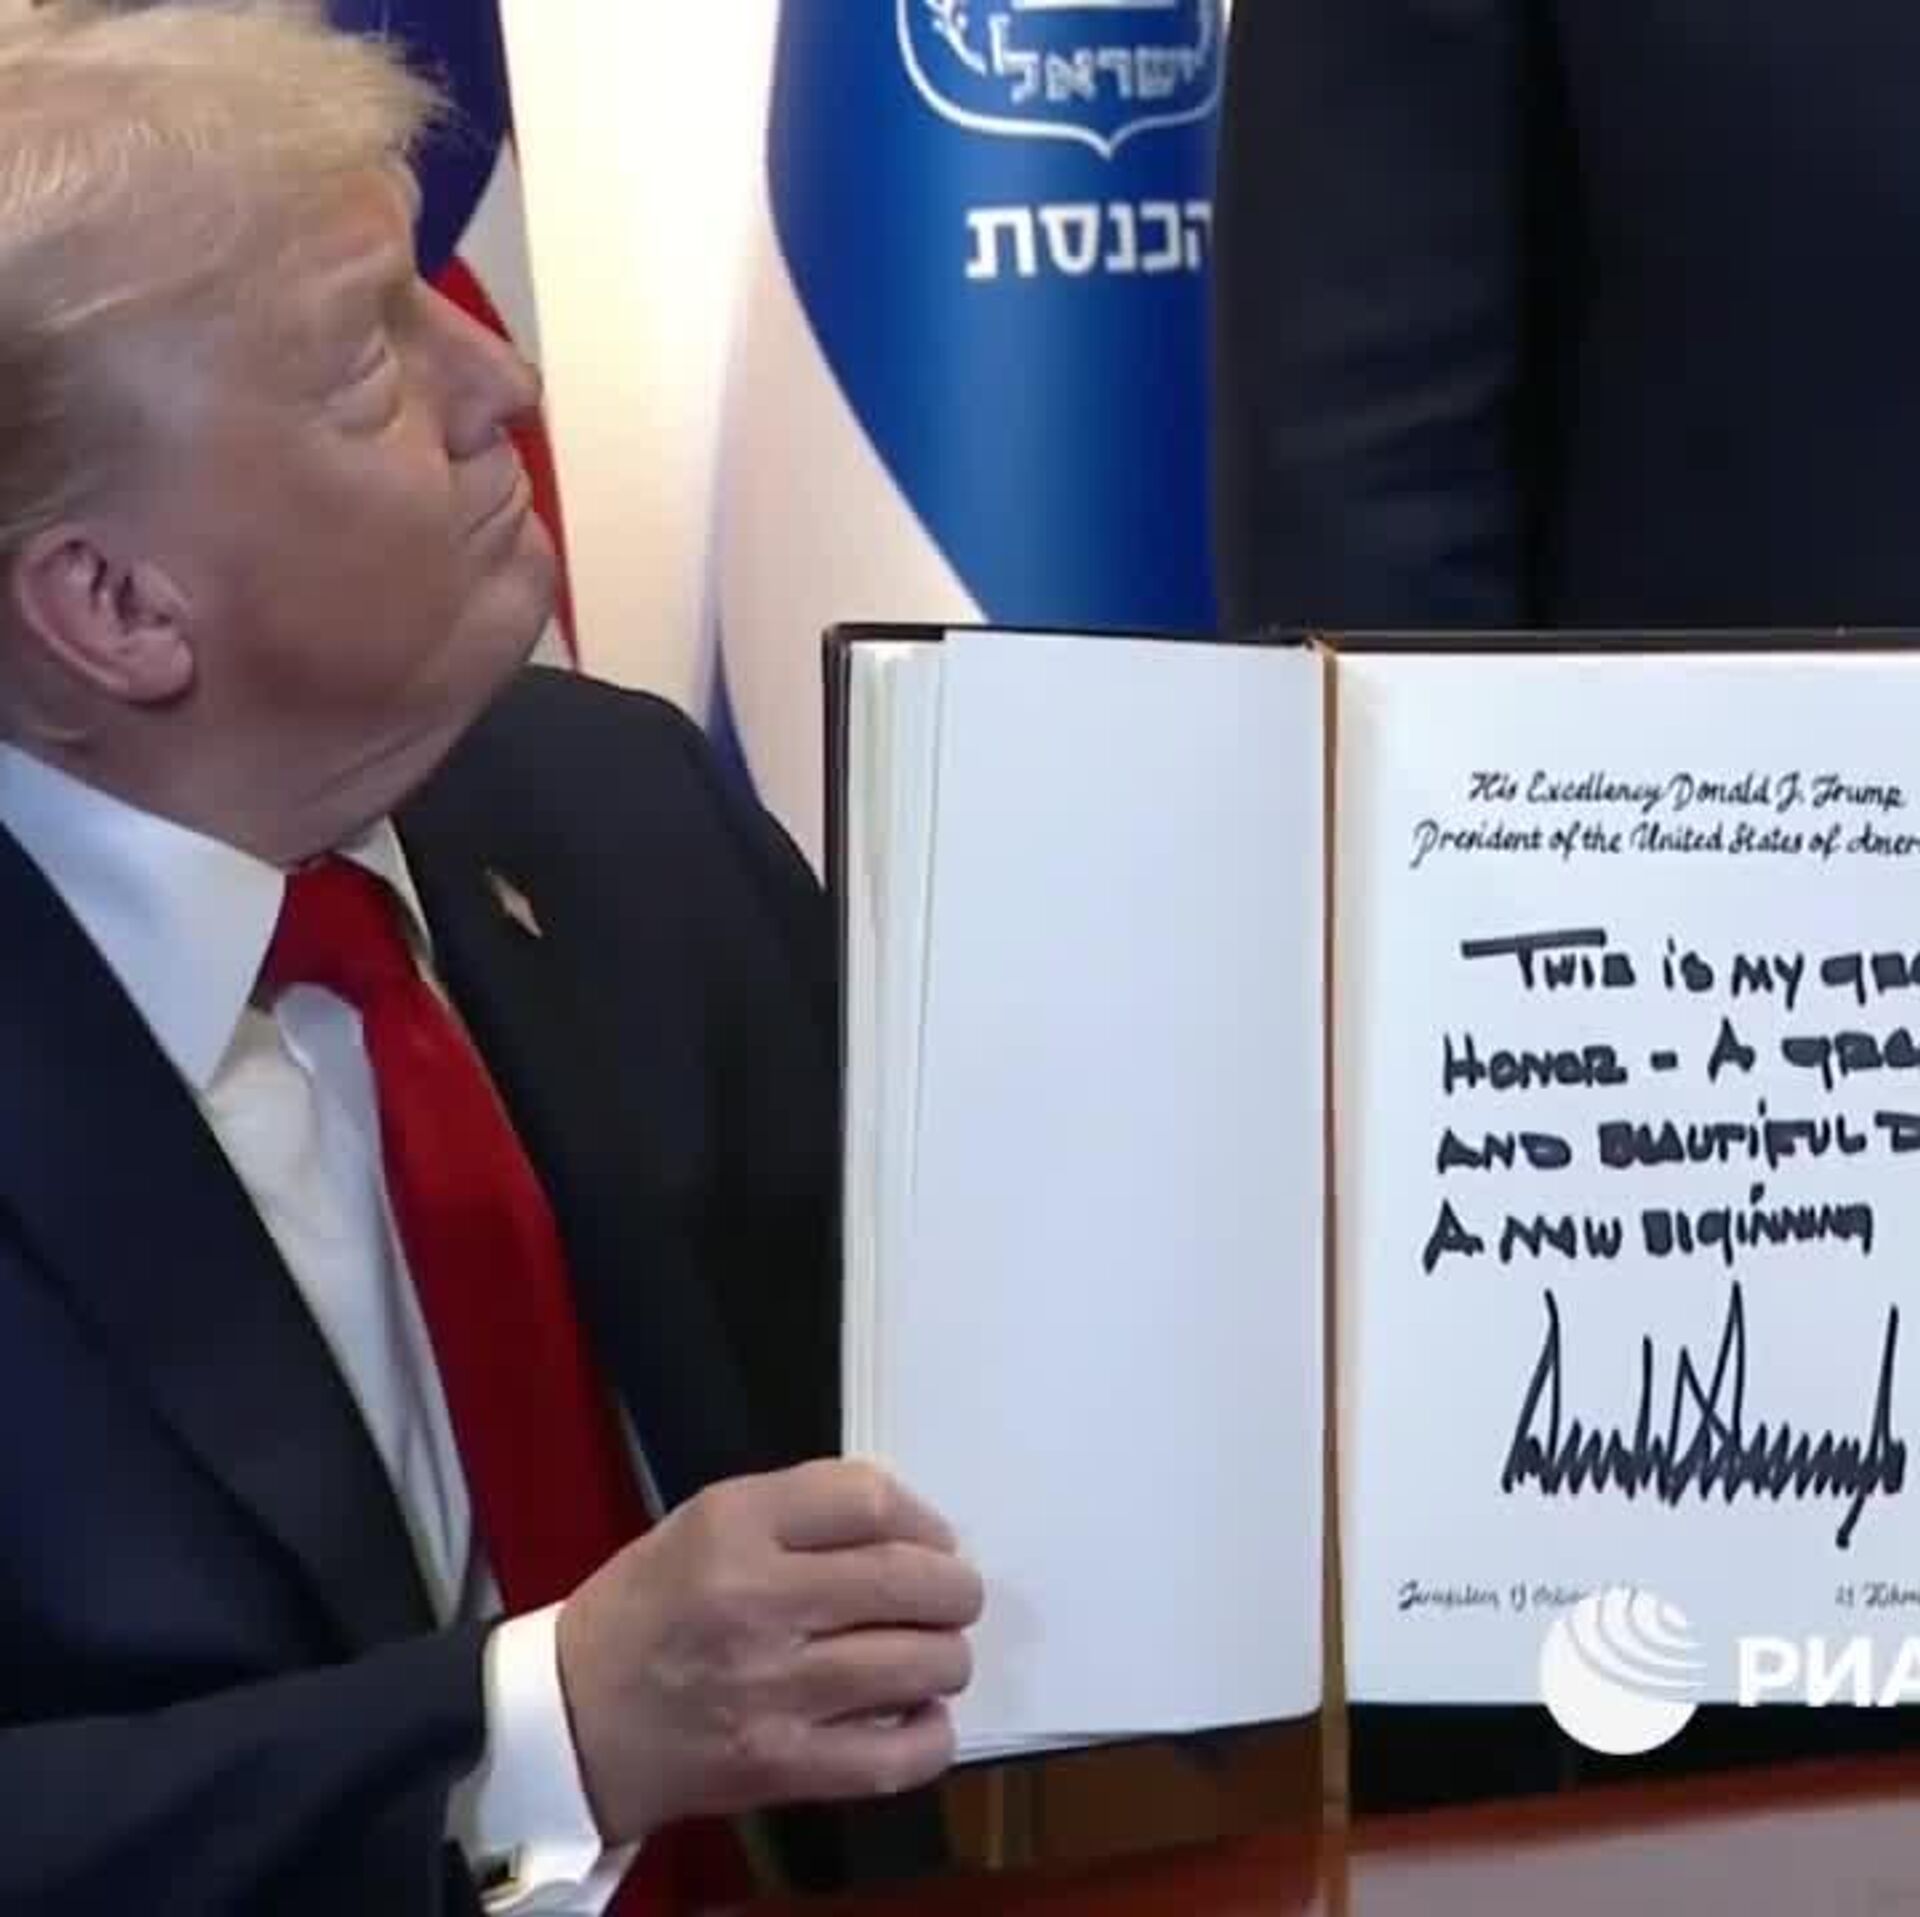 ישראל
הכנסת
His Excellency Donald J. Trump
President of the United States of Amer
This is my grea
Honor - A grea
AND BEAUTiFUL D
A NEW BEGINNING
Jerusalem,
РИА